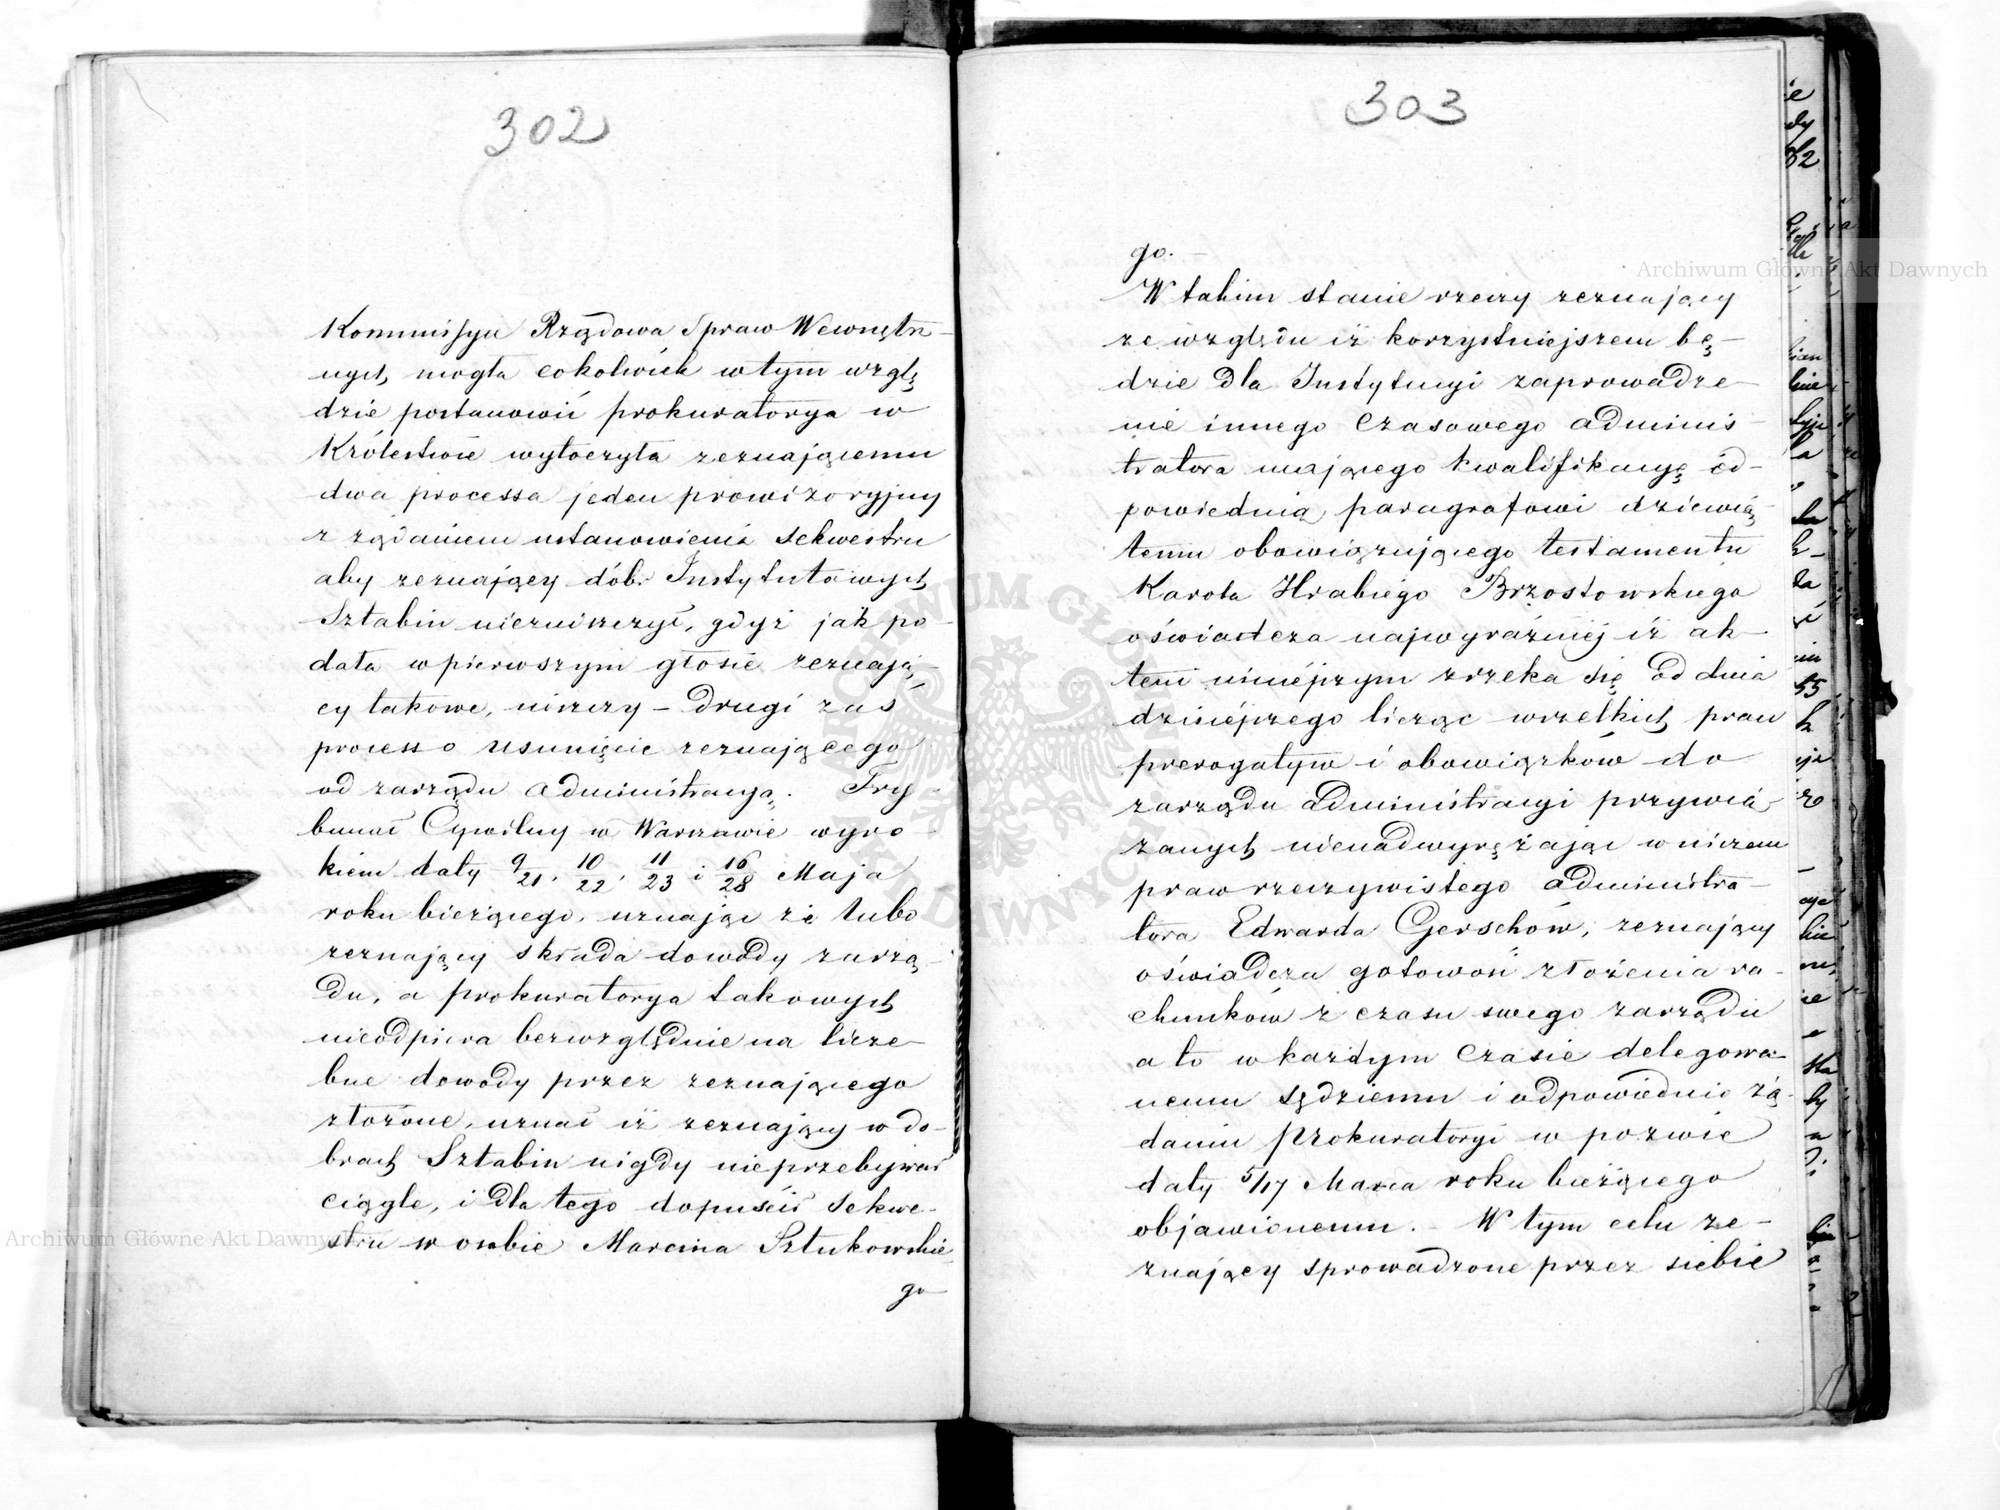 302
Kommissya Rządowa Spraw Wewnętrz-
nych mogła cokolwiek w tym wzglę
dzie postanowić prokuratorya w
Królestwie wytoczyła zeznającemu
dwa processa jeden prowizoryjny
z żądaniem ustanowienia sekwestru
aby zeznający dóbr Instytutowych
Sztabin niezniszczył, gdyż jak po-
dała w pierwszym głosie zeznają-
cy takowe, niszczy – Drugi zaś
process o usunięcie zeznającego
od zarządu administracyą. Try-
bunał Cywilny w Warszawie wyro-
kiem daty 9/21. 10/22. 11/23 i 16/28 Maja
roku bieżącego, uznając że lubo
zeznający składa dowody zarzą-
du, a prokuratorya takowych
nieodpiera bezwzględnie na licze-
bne dowody przez zeznającego
złożone, uznał iż zeznający w do-
brach Sztabin nigdy nieprzebywał
ciągle, i dla tego dopuścił sekwe-
stru w osobie Marcina Sztukowskie-
go
303
go. –
W takim stanie rzeczy zeznający
ze względu iż korzystniejszem bę-
dzie dla Instytucyi zaprowadze-
nie innego czasowego adminis-
tratora mającego kwalifikacyę od-
powiednią paragrafowi dziewią-
temu obowiązującego testamentu
Karola Hrabiego Brzostowskiego
oświadcza najwyraźniej iż ak-
tem niniejszym zrzeka się od dnia
dzisiejszego licząc wszelkich praw
prerogatyw i obowiązków do
zarządu administracyi przywią-
zanych nienadwyrężając w niczem
praw rzeczywistego administra-
tora Edwarda Gerschów, zeznający
oświadcza gotowość złożenia ra-
chunków z czasu swego zarządu
a to w każdym czasie delegowa-
nemu sędziemu i odpowiednio żą-
daniu Prokuratoryi w pozwie
daty 5/17 Marca roku bieżącego
objawionemu. – W tym celu ze-
znający sprowadzone przez siebie
Archiwum Główne Akt Dawnych
Archiwum Główne Akt Dawnych
ARCHIWUM GŁÓWNE AKT DAWNYCH